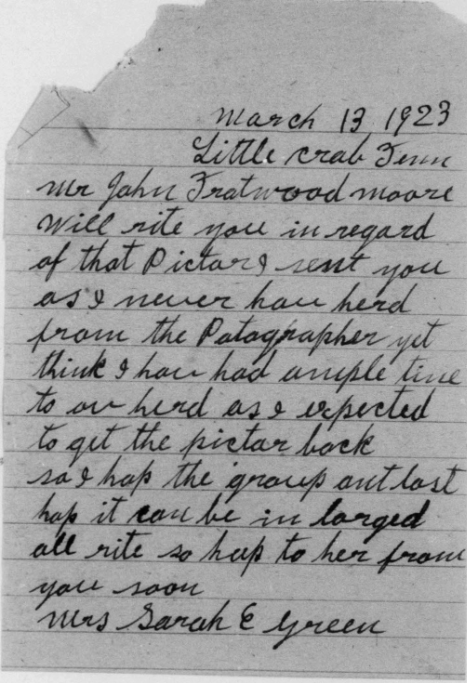 March 13 1923
Little crab Tenn
Mr John Tratwood moore
Will rite you in regard
of that Pictar I sent you
as I never hav herd
from the Patographer yet
think I hav had ample time
to av herd as I expected
to get the pictar back
so I hap the group ant lost
hap it can be in larged
all rite so hap to her from
you soon
Mrs Sarah E Green